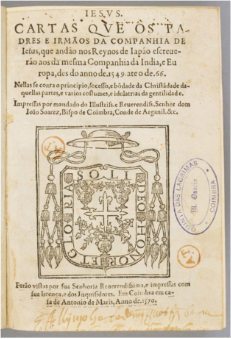 IESVS.
CARTAS QVE OS PA-
DRES E IRMÃOS DA COMPANHIA DE
Iesus, que andão nos Reynos de Iapão escreue-
rão aos da mesma Companhia da India, e Eu
ropa, des do anno de .1549. ate o de .66.
Nellas se conta o principio, socesso, e bõdade da Christãdade da-
quellas partes, e varios costumes, e idolatrias da gentilidade.
Impressas por mandado do Illustriss. e Reuerendiss. Senhor dom
Ioão Soarez, Bispo de Coimbra, Conde de Arganil. &c.
SOLI DEO HONOR ET GLORIA
QUINTA DAS LAGRIMAS
M. Osorio
COIMBRA
Forão vistas por sua Senhoria Reuerendissima, e impressas com
sua licença, e dos Inquisidores. Em Coimbra em ca-
sa de Antonio de Marijs, Anno de .1570.